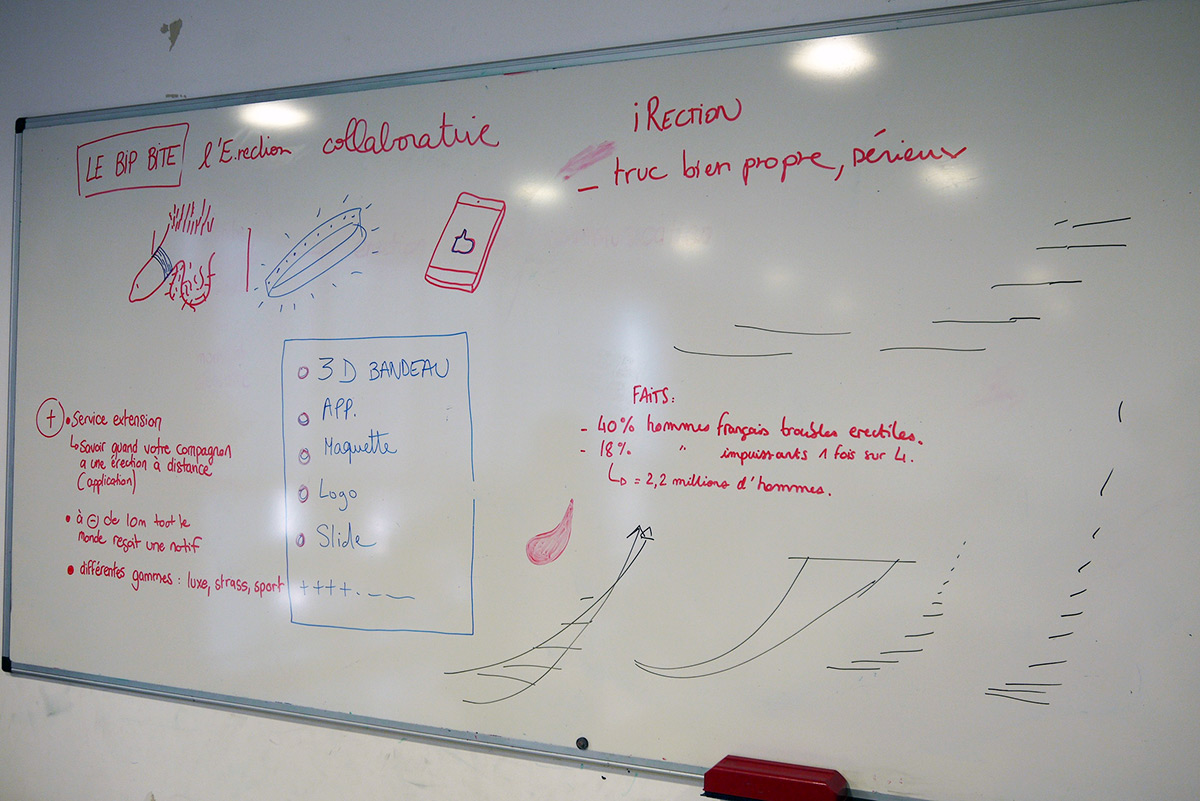 LE BIP BITE l'E.rection collaborative
iRECTION
_ truc bien propre, sérieux
3D BANDEAU
APP.
Maquette
Logo
Slide
++++.___
+ • Service extension
↳ Savoir quand votre compagnon
a une érection à distance
(application)
• à ⊖ de 10m tout le
monde reçoit une notif
• différentes gammes : luxe, strass, sport
FAITS:
- 40% hommes français troubles erectiles.
- 18% " impuissants 1 fois sur 4.
↳ = 2,2 millions d'hommes.